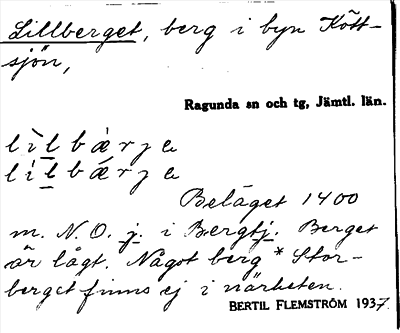 Lillberget, berg i byn Kött-
sjön,
Ragunda sn och tg, Jämtl. län.
lìlbàrja
lílbárja
Beläget 1400
m. N.O. j. i Bergtj. Berget
är lågt. Något berg * Stor-
berget finns ej i närheten.
BERTIL FLEMSTRÖM 1937.